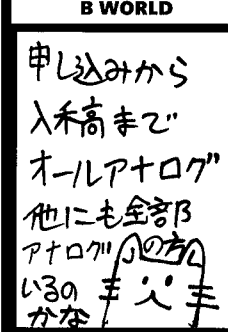 B WORLD
申し込みから
入稿まで
オールアナログ
他にも全部
アナログの方
いるの
かな